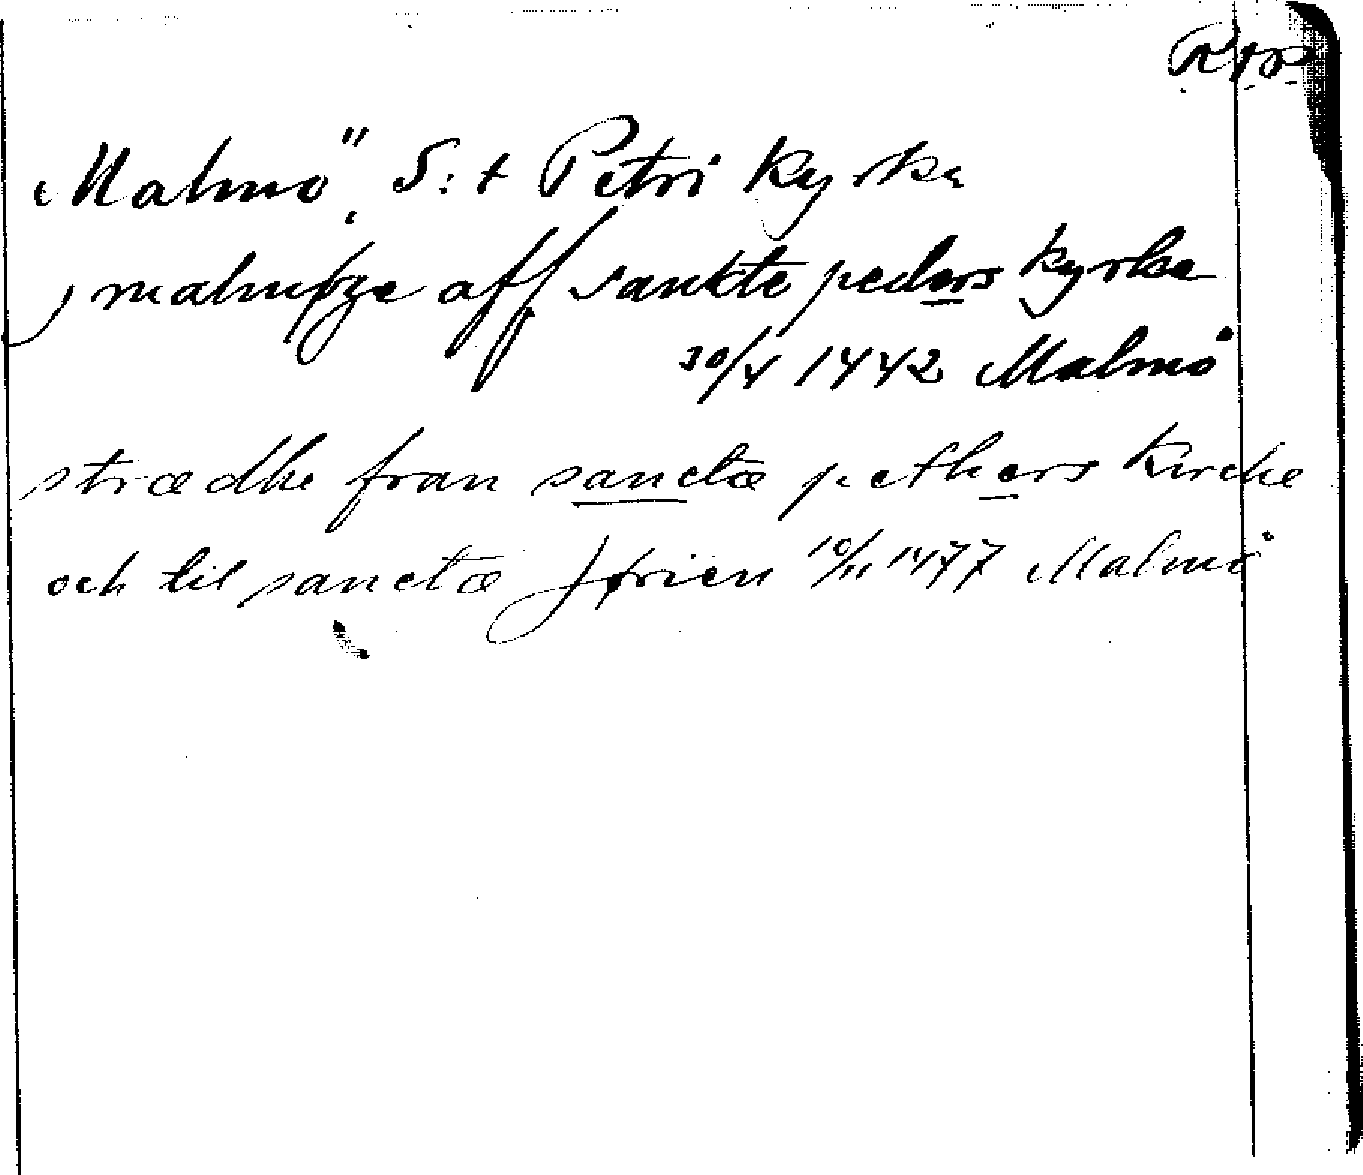 Malmö, S:t Petri kyrka
j malmøge aff sankte peders kyrke
30/4 1442 Malmö
strædhe fran sanctæ pethers kirche
och til sanctæ Jørien 10/11 1477 Malmö